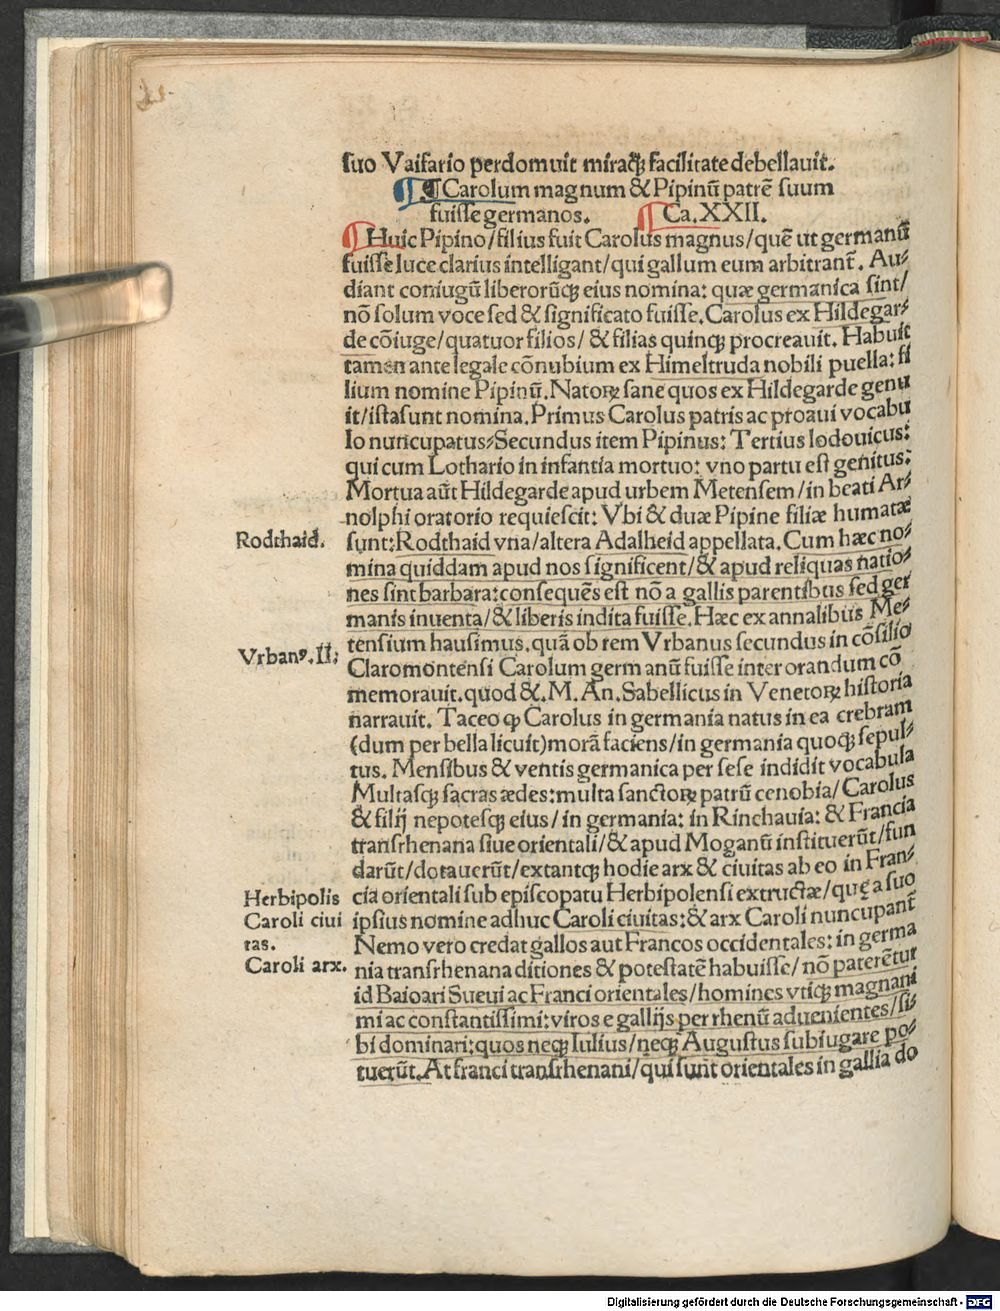 suo Vaifario perdomuit miraq̃ꝫ facilitate debellauit.
¶ Carolum magnum & Pipinū patrē suum
fuisse germanos. Ca. XXII.
Huic Pipino/filius fuit Carolus magnus/quē ut germanū
fuisse luce clarius intelligant/qui gallum eum arbitrant̄. Au⸗
diant coniugū liberorūqꝫ eius nomina: quæ germanica sint/
nō solum voce sed & significato fuisse. Carolus ex Hildegar⸗
de cōiuge/quatuor filios/ & filias quinqꝫ procreauit. Habuit
tamen ante legale cōnubium ex Himeltruda nobili puella: fi
lium nomine Pipinū. Natoꝝ sane quos ex Hildegarde genu
it/ista sunt nomina. Primus Carolus patris ac proaui vocabu
lo nuncupatus⸗Secundus item Pipinus: Tertius lodouicus:
qui cum Lothario in infantia mortuo: vno partu est genitus:
Mortua aūt Hildegarde apud urbem Metensem/in beati Ar⸗
nolphi oratorio requiescit: Vbi & duæ Pipine filiæ humatæ
Rodthaid.
sunt: Rodthaid vna/altera Adalheid appellata. Cum hæc no⸗
mina quiddam apud nos significent/& apud reliquas natio⸗
nes sint barbara: consequēs est nō a gallis parentibus sed ger
manis inuenta/& liberis indita fuisse. Hæc ex annalibus Me⸗
tensium hausimus. quā ob rem Vrbanus secundus in cōsilio
Vrbanꝰ. II;
Claromontensi Carolum germanū fuisse inter orandum cō
memorauit. quod &. M. An. Sabellicus in Venetoꝝ historia
narrauit. Taceo ꝙ Carolus in germania natus in ea crebram
(dum per bella licuit) morā faciens/in germania quoqꝫ sepul⸗
tus. Mensibus & ventis germanica per sese indidit vocabula
Multasqꝫ sacras ædes: multa sanctoꝝ patrū cenobia/Carolus
& filij nepotesqꝫ eius/in germania: in Rinchauia: & Francia
transrhenana siue orientali/& apud Moganū instituerūt/fun
darūt/dotauerūt/extantqꝫ hodie arx & ciuitas ab eo in Fran⸗
Herbipolis
cia orientali sub episcopatu Herbipolensi extructæ/quę a suo
Caroli ciui
ipsius nomine adhuc Caroli ciuitas: & arx Caroli nuncupant̄
tas.
Nemo vero credat gallos aut Francos occidentales: in germa
Caroli arx.
nia transrhenana ditiones & potestatē habuisse/nō paterētur
id Baioari Sueui ac Franci orientales/homines vtiqꝫ magnani
mi ac constantissimi: viros e gallijs per rhenū aduenientes/si⸗
bi dominari: quos neqꝫ Iulius/neqꝫ Augustus subiugare po⸗
tuerūt. At franci transrhenani/qui sunt orientales in gallia do
Digitalisierung gefördert durch die Deutsche Forschungsgemeinschaft - DFG